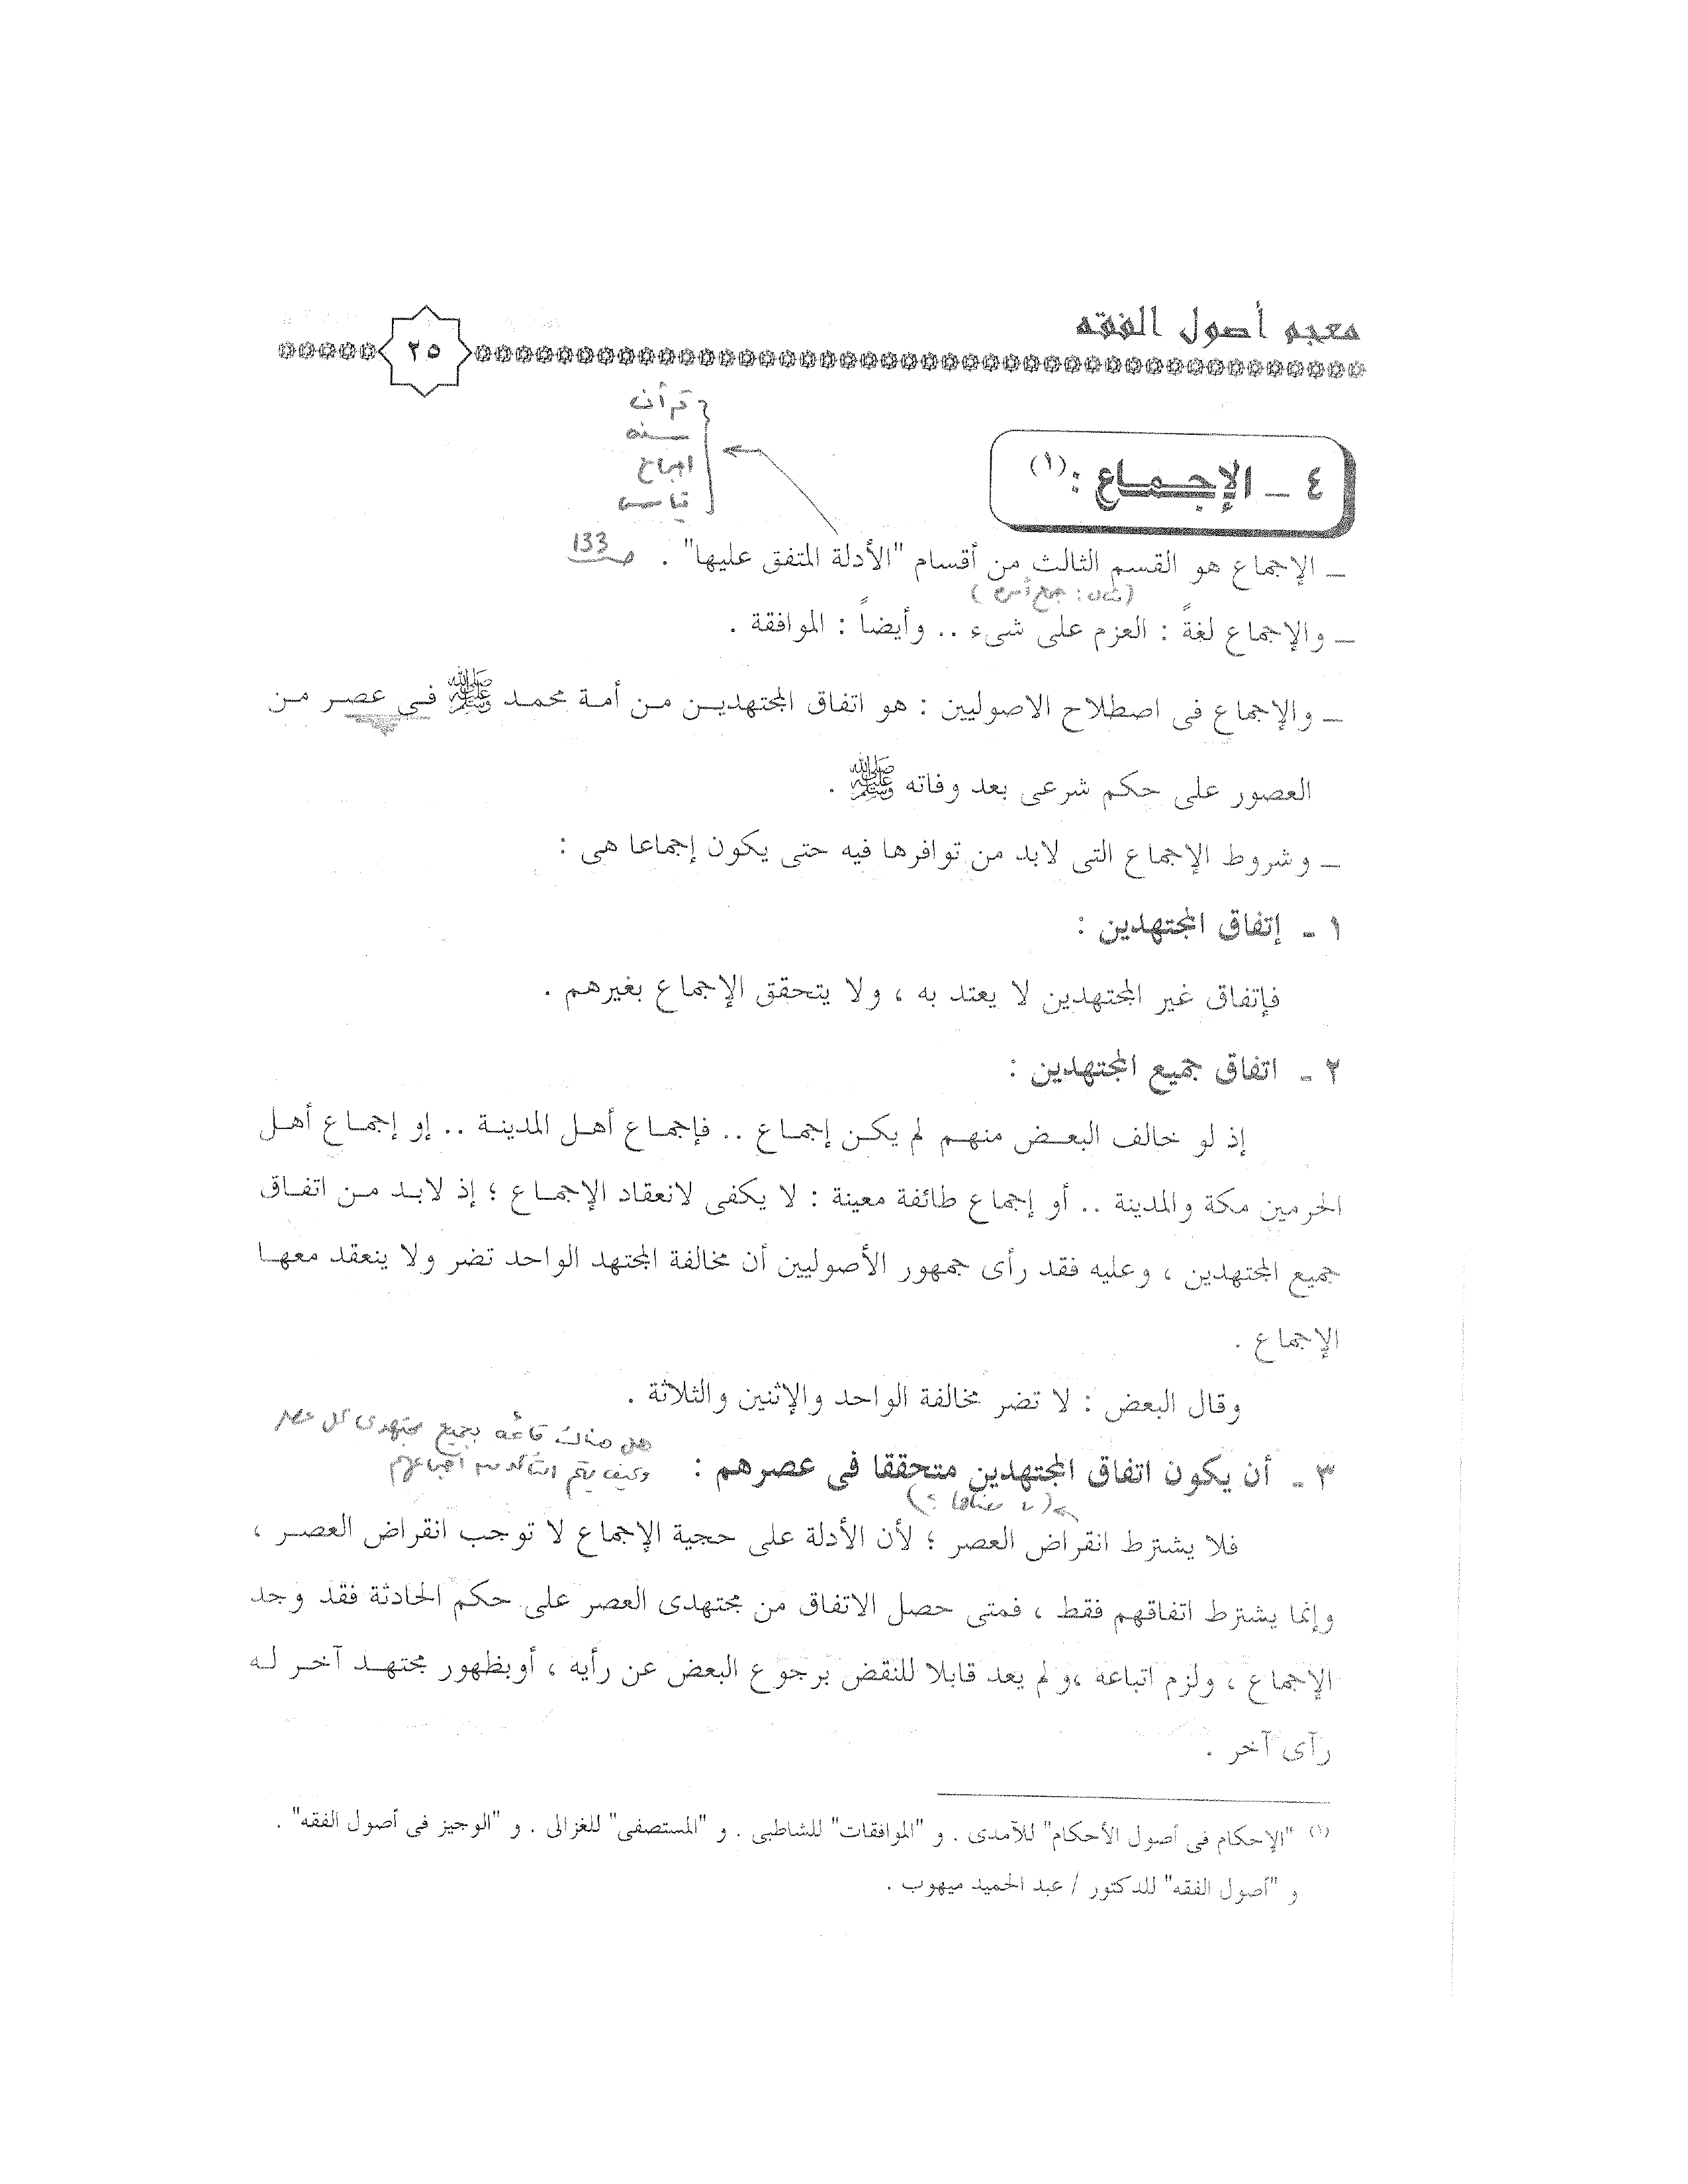 معجم أصول الفقه
٢٥
قرآن
سنه
اجماع
قياس
٤ ــ الإجـمـاع : (١)
ــ الإجماع هو القسم الثالث من أقسام "الأدلة المتفق عليها" . صـ 133
(مثال : جمع أمره)
ــ والإجماع لغةً : العزم على شىء .. وأيضاً : الموافقة .
ــ والإجماع فى اصطلاح الاصوليين : هو اتفاق المجتهديـن مـن أمـة محمـد ﷺ فـى عصـر مـن
العصور على حكم شرعى بعد وفاته ﷺ .
ــ وشروط الإجماع التى لابد من توافرها فيه حتى يكون إجماعا هى :
١ ـ إتفاق المجتهدين :
فإتفاق غير المجتهدين لا يعتد به ، ولا يتحقق الإجماع بغيرهم .
٢ ـ اتفاق جميع المجتهدين :
إذ لو خالف البعـض منهـم لم يكـن إجمـاع .. فإجمـاع أهـل المدينـة .. إو إجمـاع أهـل
الحرمين مكة والمدينة .. أو إجماع طائفة معينة : لا يكفى لانعقاد الإجمـاع ؛ إذ لابـد مـن اتفـاق
جميع المجتهدين ، وعليه فقد رأى جمهور الأصوليين أن مخالفة المجتهد الواحد تضر ولا ينعقد معهـا
الإجماع .
وقال البعض : لا تضر مخالفة الواحد والإثنين والثلاثة .
هل هناك قائمة بجميع مجتهدى كل عصر
وكيف يتم التأكد من اجماعهم
٣ ـ أن يكون اتفاق المجتهدين متحققا فى عصرهم :
فلا يشترط انقراض العصر ؛ لأن الأدلة على حجية الإجماع لا توجب انقراض العصـر ،
وإنما يشترط اتفاقهم فقط ، فمتى حصل الاتفاق من مجتهدى العصر على حكم الحادثة فقد وجد
الإجماع ، ولزم اتباعه ،ولم يعد قابلا للنقض برجوع البعض عن رأيه ، أوبظهور مجتهـد آخـر لـه
رآى آخر .
(١) "الإحكام فى أصول الأحكام" للآمدى . و "الموافقات" للشاطبى . و "المستصفى" للغزالى . و "الوجيز فى أصول الفقه" .
و "أصول الفقه" للدكتور / عبد الحميد ميهوب .